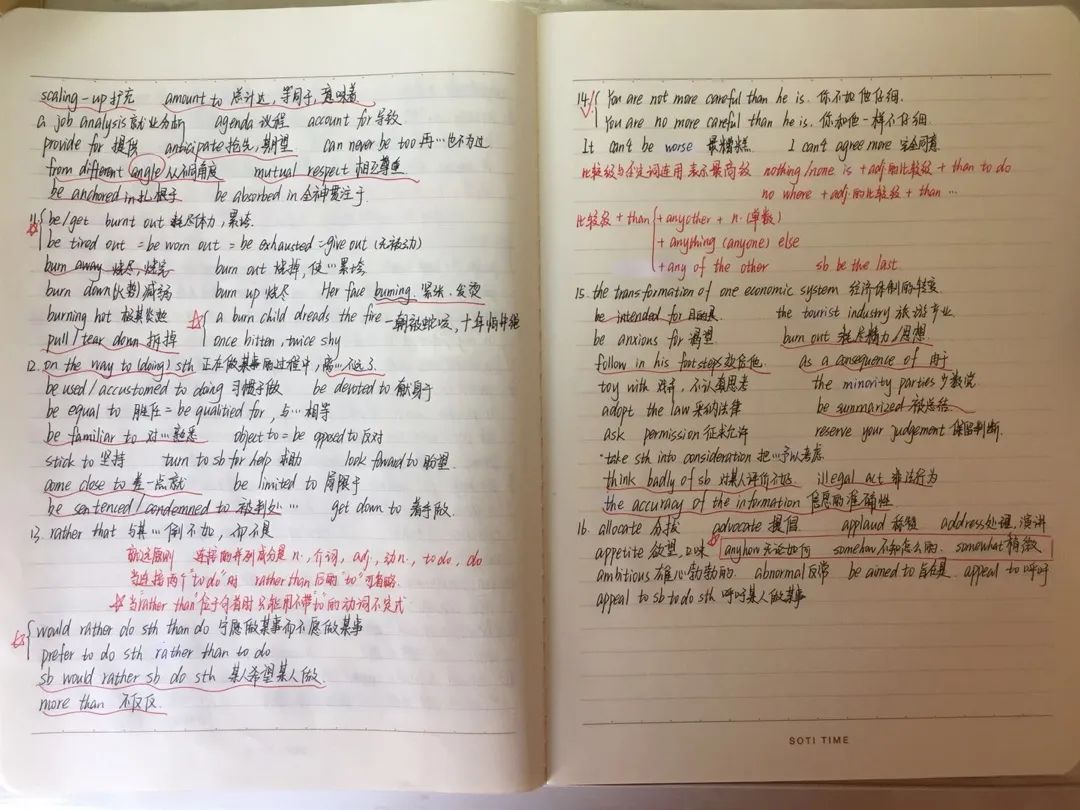 scaling-up 扩充 amount to 总计达，等同于，意味着
a job analysis 就业分析 agenda 议程 account for 导致
provide for 提供 anticipate 抢先，期望 can never be too 再…也不为过
from different angle 从不同角度 mutual respect 相互尊重
be anchored in 扎根于 be absorbed in 全神贯注于
11. be/get burnt out 耗尽体力，累垮
be tired out = be worn out = be exhausted = give out (无被动)
burn away 烧尽，烧完 burn out 烧掉，使…累垮
burn down (火势)减弱 burn up 烧尽 Her face burning. 紧张，发烫
burning hot 极其炎热 a burn child dreads the fire 一朝被蛇咬，十年怕井绳
pull/tear down 拆掉 once bitten, twice shy
12. on the way to (doing) sth 正在做某事的过程中，离…不远了
be used/accustomed to doing 习惯于做 be devoted to 献身于
be equal to 胜任 = be qualified for，与…相等
be familiar to 对…熟悉 object to = be opposed to 反对
stick to 坚持 turn to sb for help 求助 look forward to 盼望
come close to 差一点就 be limited to 局限于
be sentenced/condemned to 被判处… get down to 着手做
13. rather that 与其…倒不如，而不是
就近原则 连接的并列成分是 n，介词，adj，动n，to do，do
当连接两个"to do"时 rather than 后的"to"可省略
☆当"rather than"位于句首时只能用不带"to"的动词不定式
would rather do sth than do 宁愿做某事而不愿做某事
prefer to do sth rather than to do
sb would rather sb do sth 某人希望某人做
more than 不仅仅
14. You are not more careful than he is. 你不如他仔细.
You are no more careful than he is. 你和他一样不仔细.
It can't be worse 最糟糕 I can't agree more 完全同意
比较级与否定词连用 表示最高级 nothing/none is + adj的比较级 + than to do
no where + adj.的比较级 + than …
比较级 + than + anyother + n. (单数)
+ anything (anyone) else
+ any of the other sb be the last
15. the transformation of one economic system 经济体制的转变
be intended for 目的是 the tourist industry 旅游产业
be anxious for 渴望 burn out 耗尽精力/思想
follow in his footsteps 效仿他 as a consequence of 由于
toy with 戏弄，不认真思考 the minority parties 少数党
adopt the law 采纳法律 be summarized 被总结
ask permission 征求允许 reserve your judgement 保留判断.
·take sth into consideration 把…予以考虑
think badly of sb 对某人评价不好 illegal act 违法行为
the accuracy of the information 信息的准确性
16. allocate 分拨 advocate 提倡 applaud 称赞 address 处理，演讲
appetite 欲望，口味 anyhow 无论如何 somehow 不知怎么的 somewhat 稍微
ambitious 雄心勃勃的 abnormal 反常 be aimed to 旨在是 appeal to 呼吁
appeal to sb to do sth 呼吁某人做某事
SOTI TIME